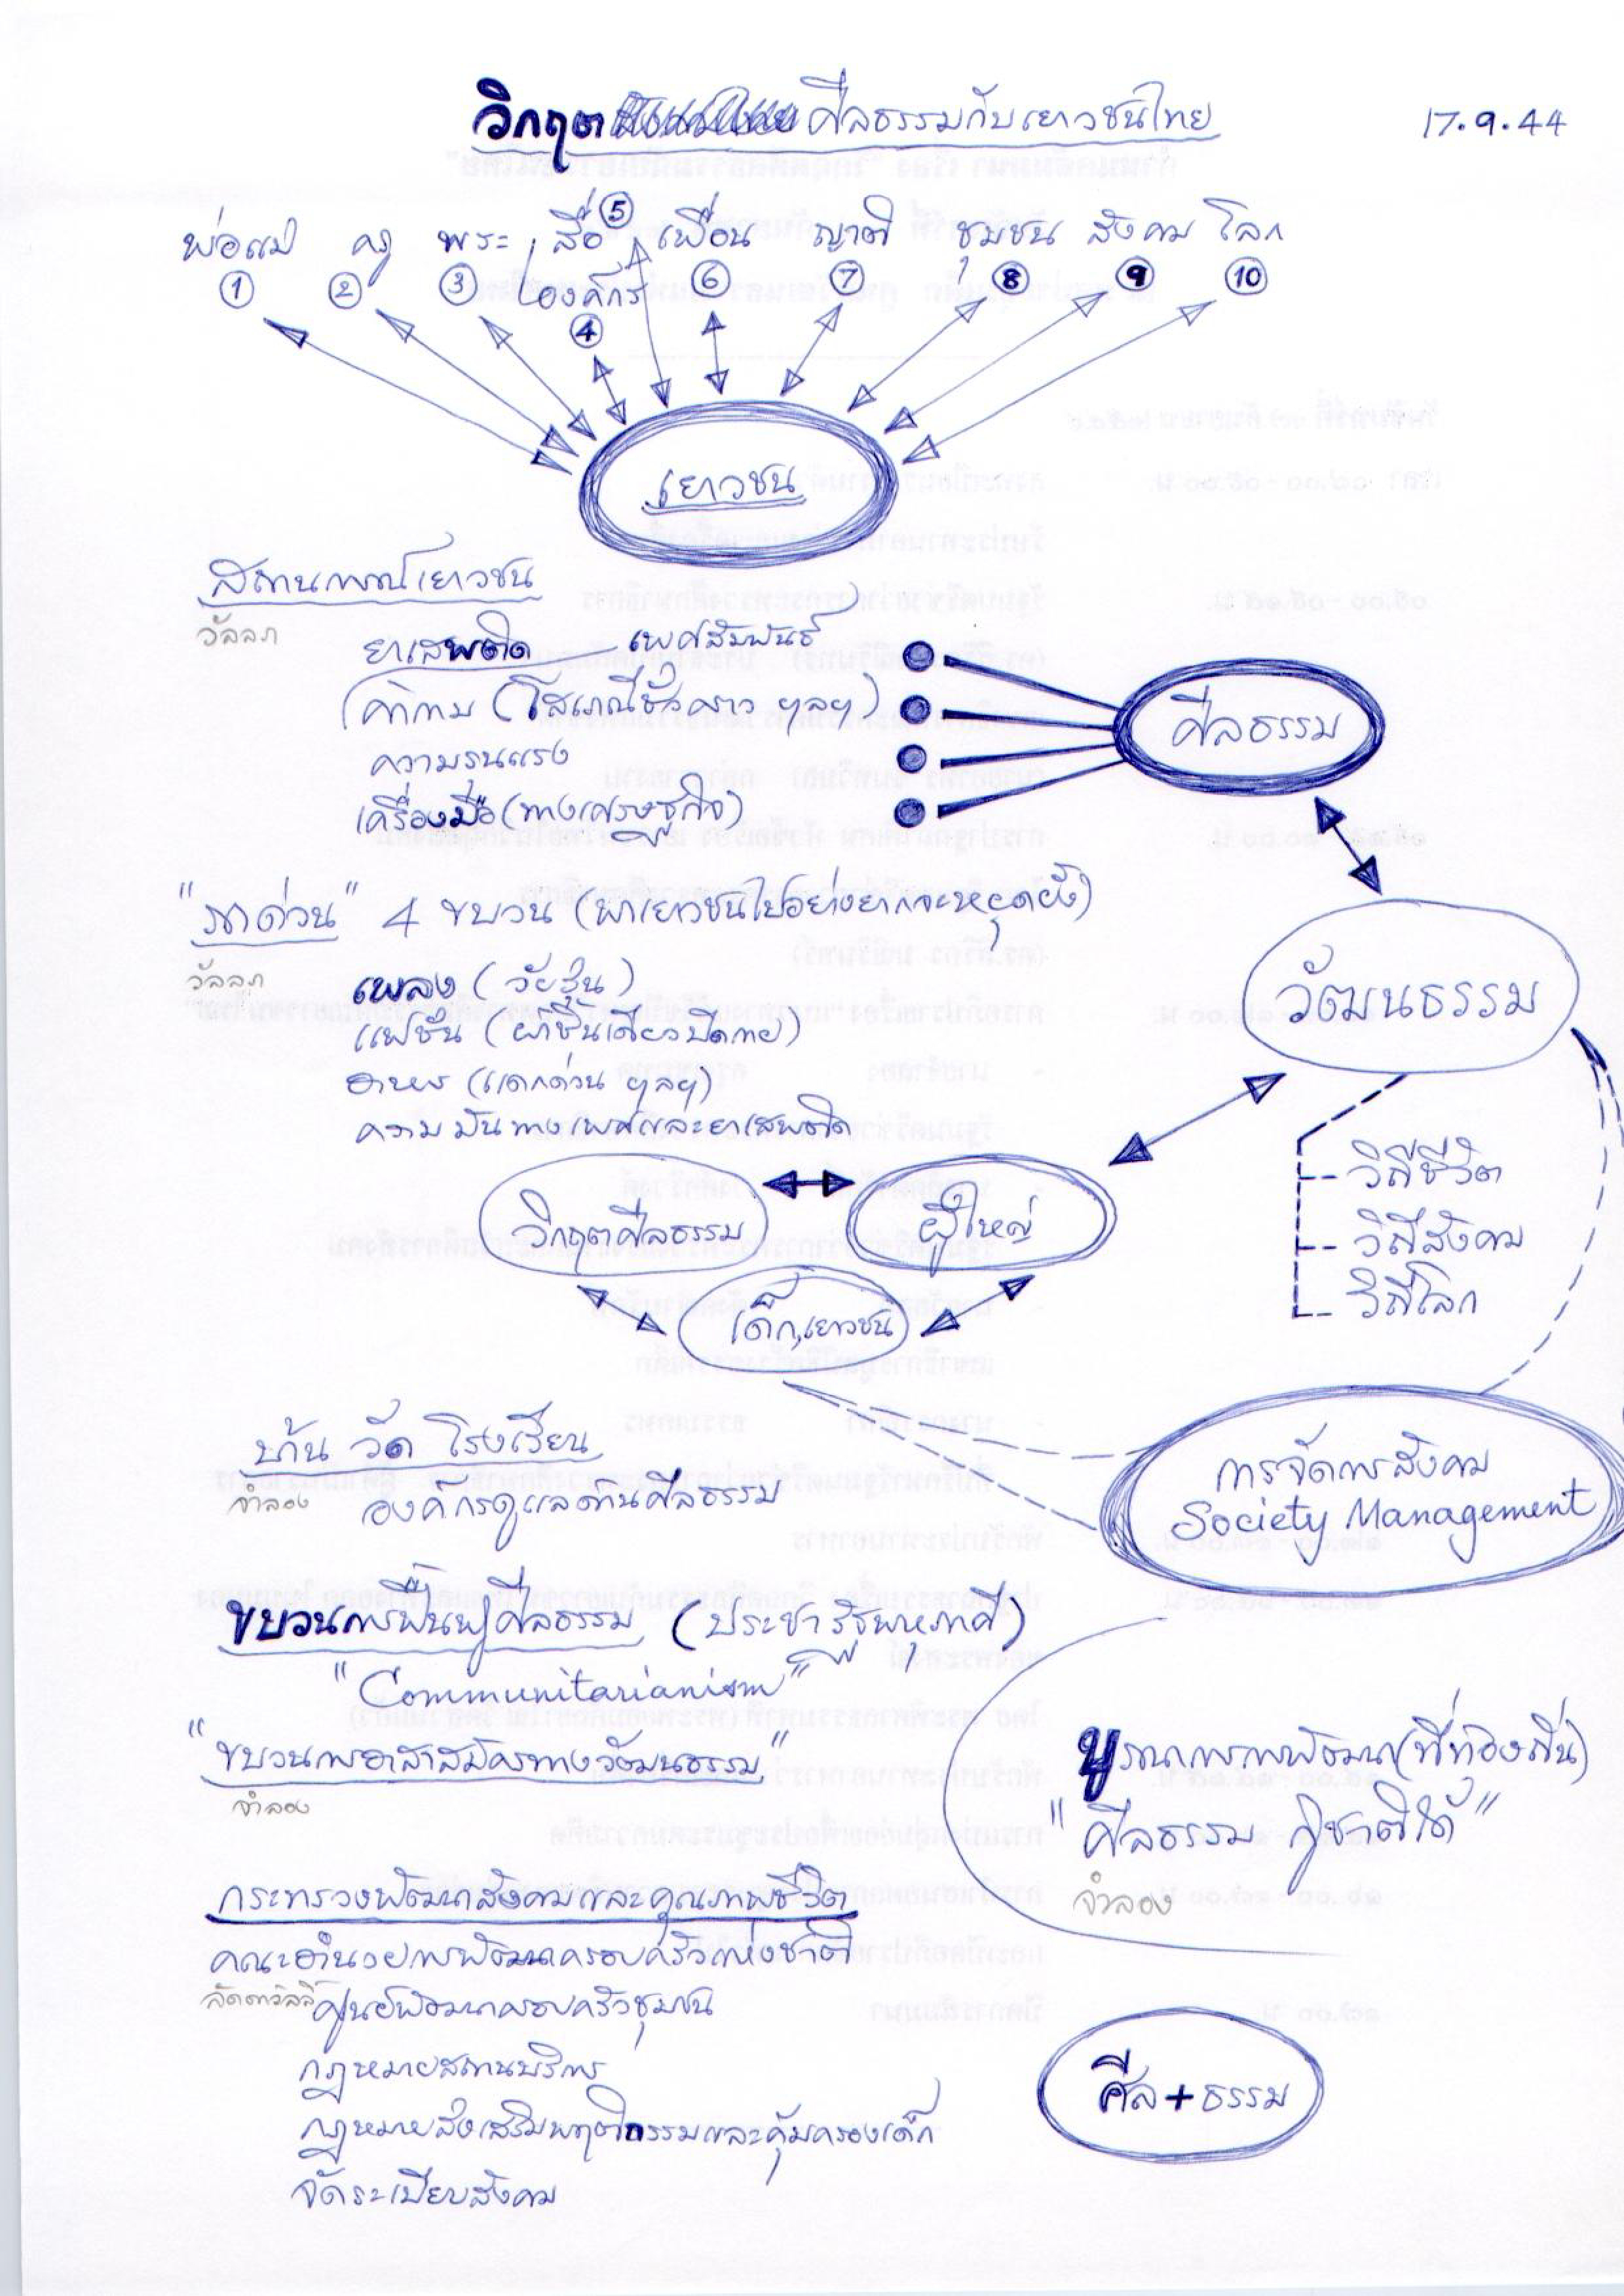 วิกฤต ศีลธรรมกับเยาวชนไทย
17.9.44
พ่อแม่ ครู พระ สื่อ ⑤ เพื่อน ญาติ ชุมชน สังคม โลก
① ② ③ องค์กร ⑥ ⑦ ⑧ ⑨ ⑩
④
เยาวชน
สถานการณ์เยาวชน
วัลลภ
ยาเสพติด เพศสัมพันธ์
ค้ากาม (โสเภณีชั่วคราว ฯลฯ)
ความรุนแรง
เครื่องมือ (ทางเศรษฐกิจ)
ศีลธรรม
"รถด่วน" 4 ขบวน (พาเยาวชนไปอย่างยากจะหยุดยั้ง)
วัลลภ
เพลง (วัยรุ่น)
แฟชั่น (ผ้าชิ้นเดียวปิดกาย)
อาหาร (แดกด่วน ฯลฯ)
ความมันทางเพศและยาเสพติด
วัฒนธรรม
วิถีชีวิต
วิถีสังคม
วิถีโลก
วิกฤตศีลธรรม
ผู้ใหญ่
เด็ก,เยาวชน
บ้าน วัด โรงเรียน
จำลอง
องค์กรดูแลด้านศีลธรรม
การจัดการสังคม
Society Management
ขบวนการฟื้นฟูศีลธรรม (ประชารัฐพหุภาคี)
"Communitarianism"
"ขบวนการอาสาสมัครทางวัฒนธรรม"
จำลอง
บูรณาการการพัฒนา (ที่ท้องถิ่น)
"ศีลธรรม กู้ชาติได้"
จำลอง
กระทรวงพัฒนาสังคมและคุณภาพชีวิต
คณะอำนวยการพัฒนาครอบครัวแห่งชาติ
ลัดดาวัลลิ์
ศูนย์พัฒนาครอบครัวชุมชน
กฎหมายสถานบริการ
กฎหมายส่งเสริมพฤติกรรมและคุ้มครองเด็ก
จัดระเบียบสังคม
ศีล + ธรรม